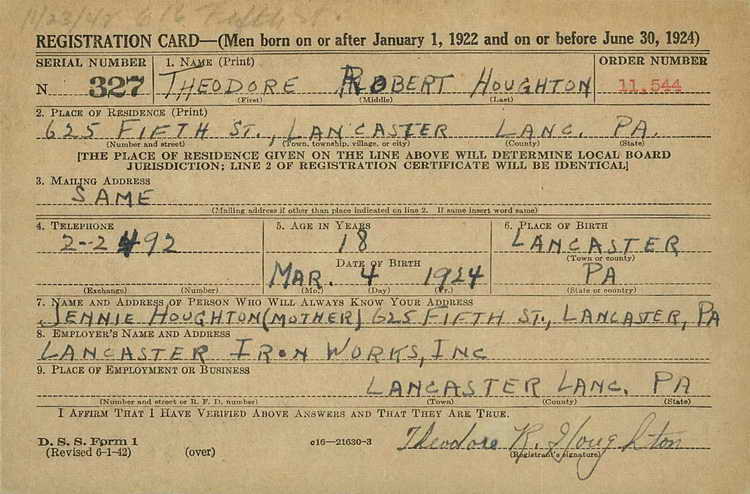 11/23/42 616 Fifth St.
REGISTRATION CARD—(Men born on or after January 1, 1922 and on or before June 30, 1924)
SERIAL NUMBER 1. NAME (Print) ORDER NUMBER
N 327 THEODORE ROBERT HOUGHTON 11,544
(First) (Middle) (Last)
2. PLACE OF RESIDENCE (Print)
625 FIFTH ST., LANCASTER LANC. PA.
(Number and street) (Town, township, village, or city) (County) (State)
[THE PLACE OF RESIDENCE GIVEN ON THE LINE ABOVE WILL DETERMINE LOCAL BOARD
JURISDICTION; LINE 2 OF REGISTRATION CERTIFICATE WILL BE IDENTICAL]
3. MAILING ADDRESS
SAME
(Mailing address if other than place indicated on line 2. If same insert word same)
4. TELEPHONE 5. AGE IN YEARS 6. PLACE OF BIRTH
2-2492 18 LANCASTER
(Town or county)
DATE OF BIRTH
MAR. 4 1924 PA
(Exchange) (Number) (Mo.) (Day) (Yr.) (State or country)
7. NAME AND ADDRESS OF PERSON WHO WILL ALWAYS KNOW YOUR ADDRESS
JENNIE HOUGHTON (MOTHER) 625 FIFTH ST., LANCASTER, PA
8. EMPLOYER'S NAME AND ADDRESS
LANCASTER IRON WORKS, INC
9. PLACE OF EMPLOYMENT OR BUSINESS
LANCASTER LANC. PA
(Number and street or R. F. D. number) (Town) (County) (State)
I AFFIRM THAT I HAVE VERIFIED ABOVE ANSWERS AND THAT THEY ARE TRUE.
D. S. S. Form 1 c16—21630-3 Theodore R. Houghton
(Revised 6-1-42) (over) (Registrant's signature)